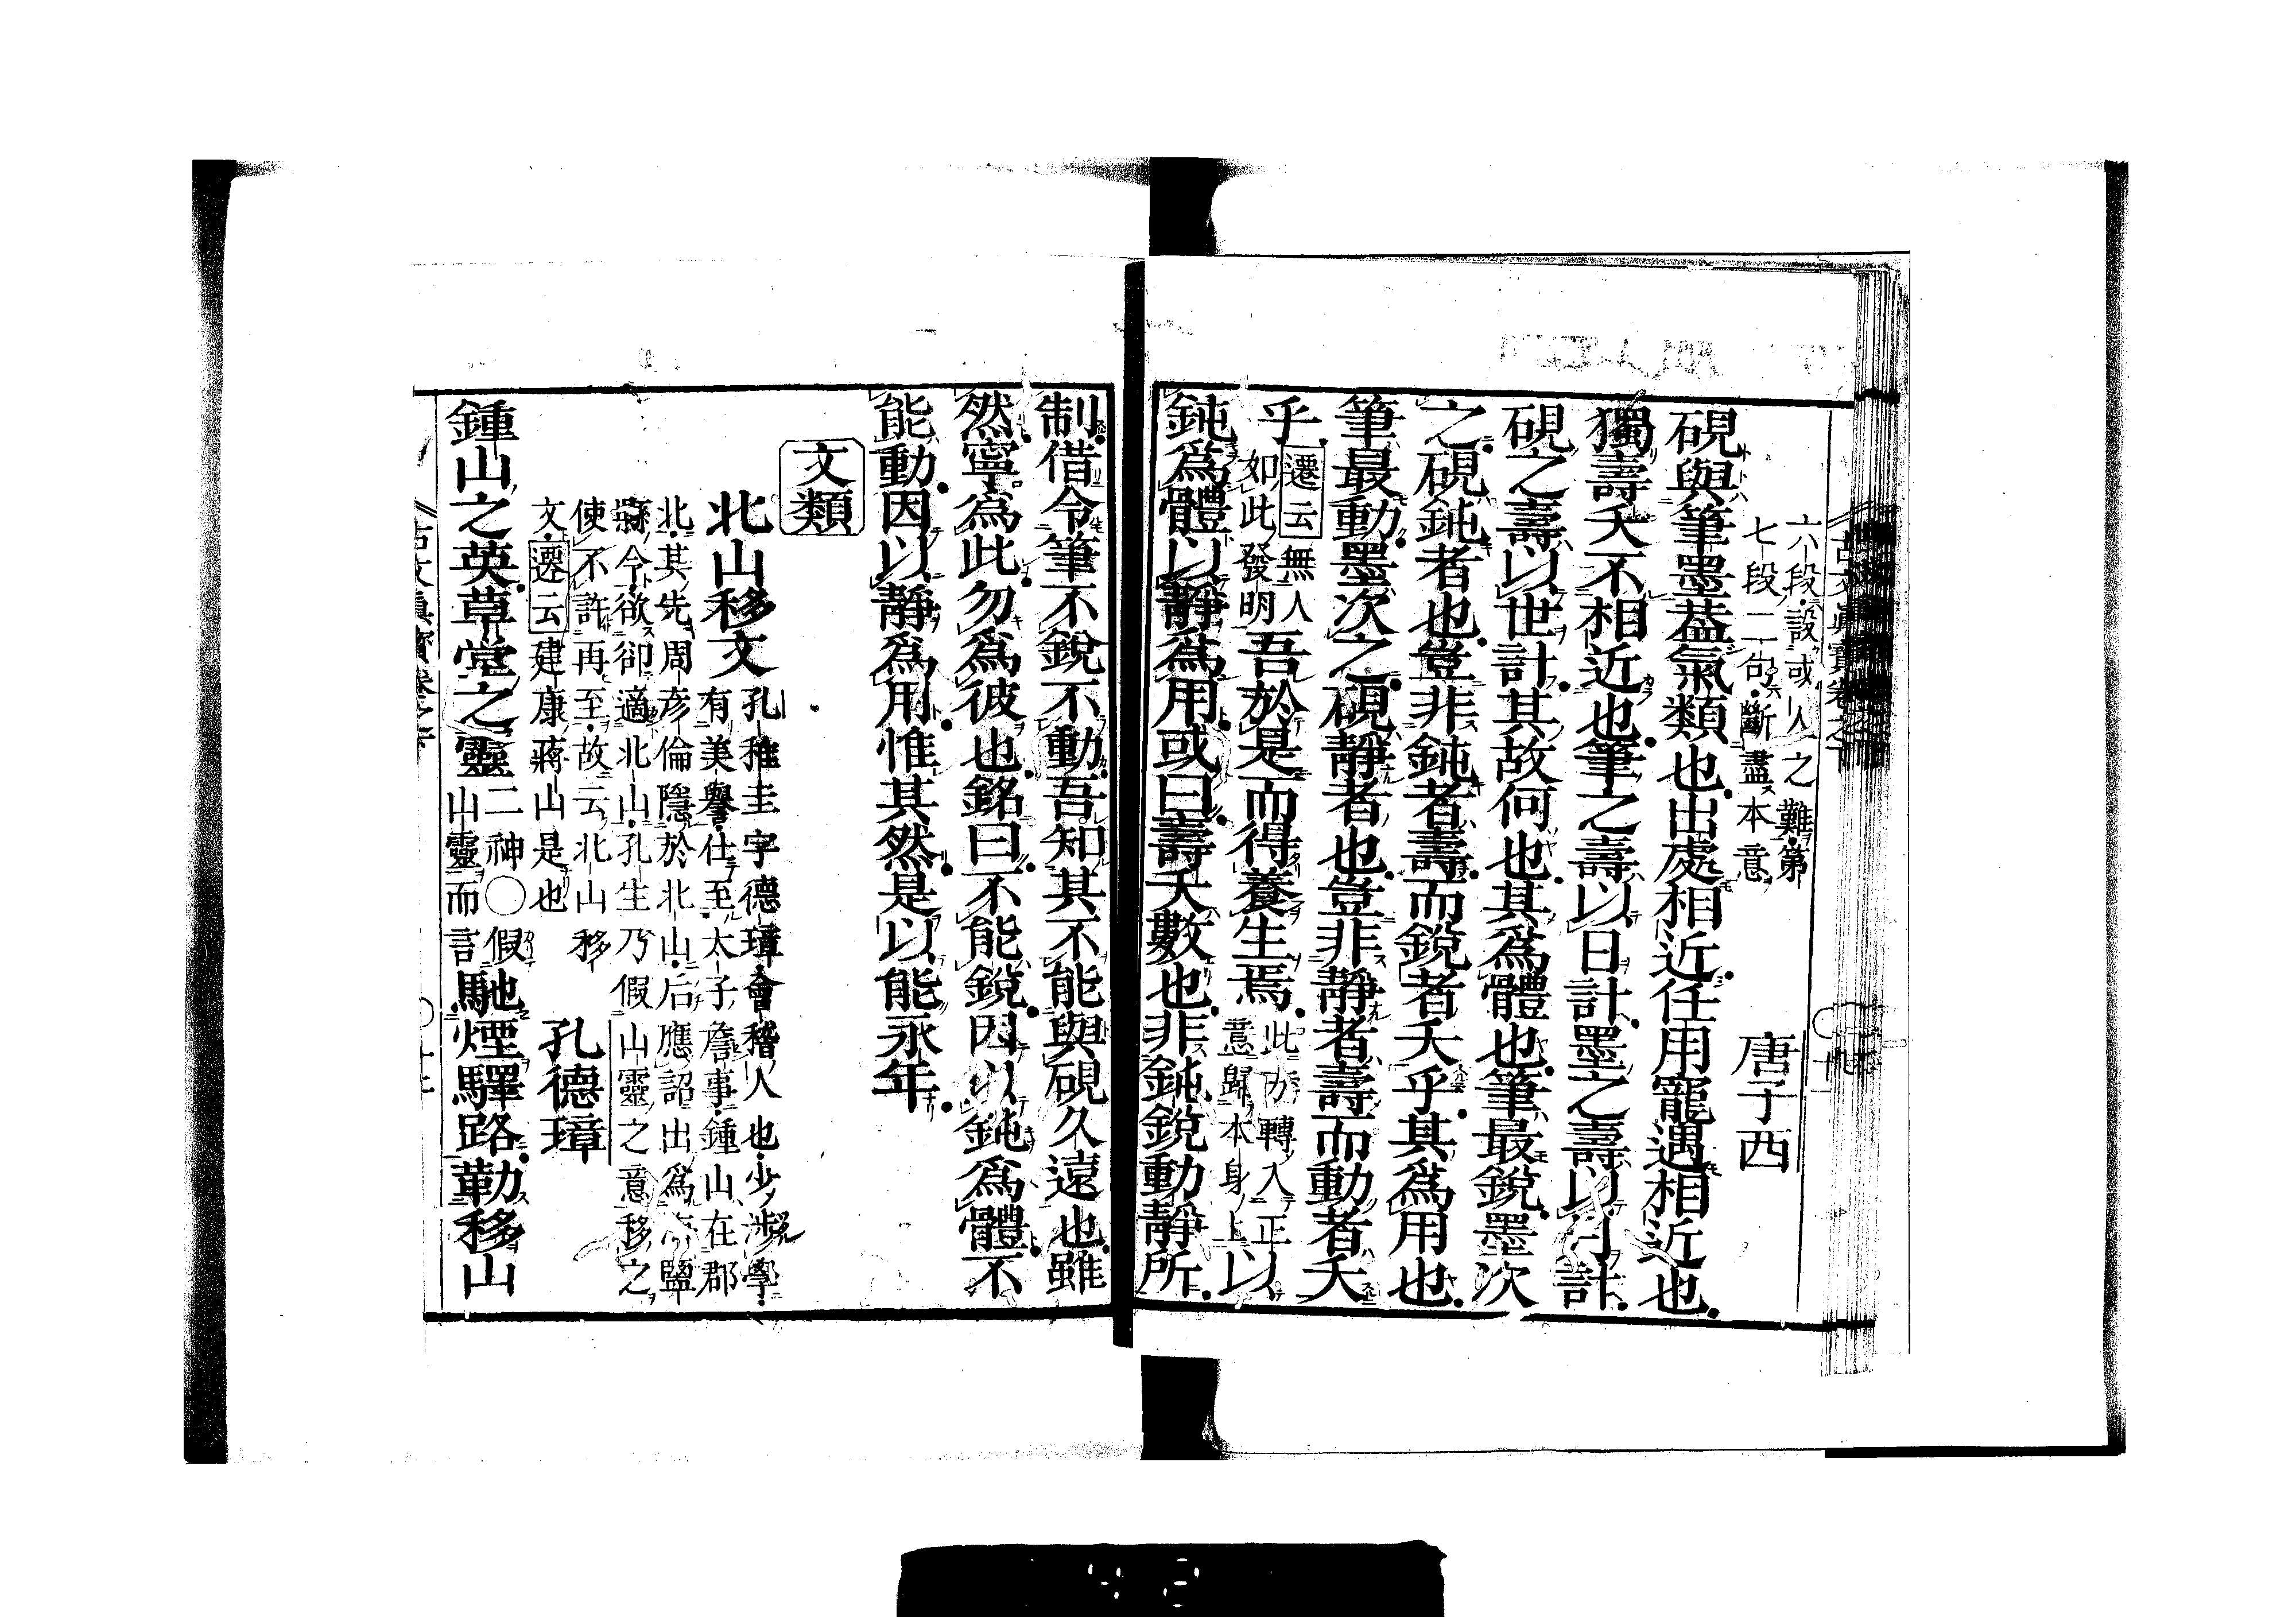 古文眞寶卷之下
六段設或人之難第
七段二句斷盡本意
唐子西
硯與筆墨葢氣類也出處相近任用寵遇相近也
獨壽夭不相近也筆之壽以日計墨之壽以月計
硯之壽以世計其故何也其爲體也筆最銳墨次
之硯鈍者也豈非鈍者壽而銳者夭乎其爲用也
筆最動墨次之硯靜者也豈非靜者壽而動者夭
乎
遷云無人
如此發明
吾於是而得養生焉
此方轉入正
意歸本身上
以
鈍爲體以靜爲用或曰壽夭數也非鈍銳動靜所
制借令筆不銳不動吾知其不能與硯久遠也雖
然寧爲此勿爲彼也銘曰不能銳因以鈍爲體不
能動因以靜爲用惟其然是以能永年
文類
北山移文
孔稚圭字德璋會稽人也少涉學
有美譽仕至太子詹事鍾山在郡
北其先周彦倫隱於北山后應詔出爲海鹽
縣令欲卻適北山孔生乃假山靈之意移之
使不許再至故云北山移
文遷云建康蔣山是也
孔德璋
鍾山之英草堂之靈
二神○假
山靈而言
馳煙驛路勒移山